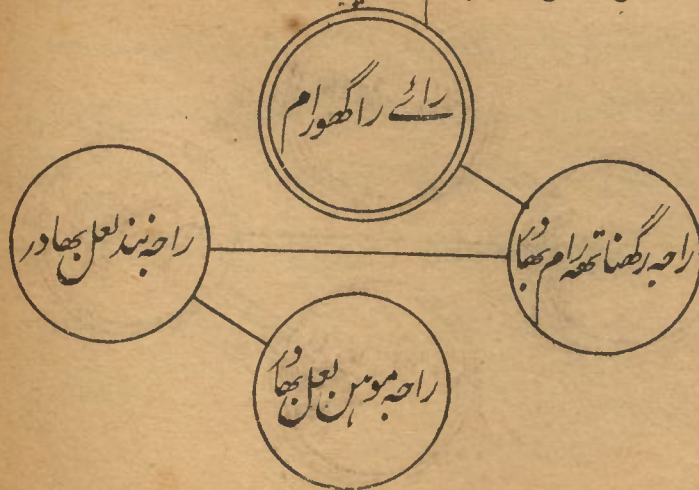 رائے راگھورام
راجہ رگھناتھہ رام بھادر
راجہ نند لعل بھادر
راجہ موہن لعل بھادر